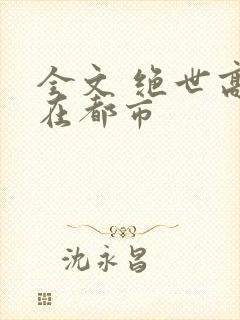 全文 绝世高
在都市
沈永昌